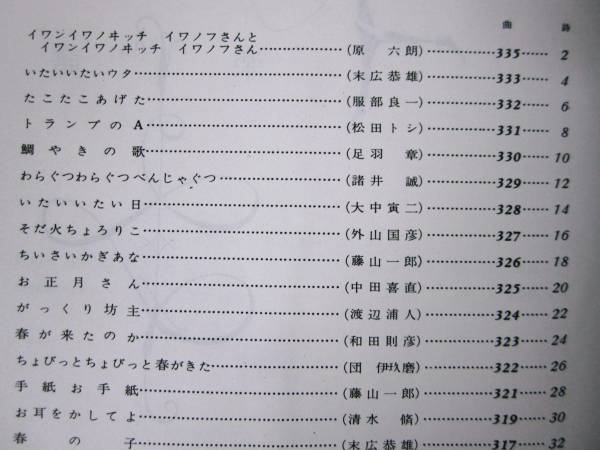 曲 詩
イワンイワノヰッチ イワノフさんと
イワンイワノヰッチ イワノフさん………………(原 六朗)…………335……2
いたいいたいウタ………………(末広恭雄)…………333……4
たこたこあげた………………(服部良一)…………332……6
トランプのA………………(松田トシ)…………331……8
鯛やきの歌………………(足羽 章)…………330……10
わらぐつわらぐつべんじゃぐつ………………(諸井 誠)…………329……12
いたいいたい日………………(大中寅二)…………328……14
そだ火ちょろりこ………………(外山国彦)…………327……16
ちいさいかぎあな………………(藤山一郎)…………326……18
お正月さん………………(中田喜直)…………325……20
がっくり坊主………………(渡辺浦人)…………324……22
春が来たのか………………(和田則彦)…………323……24
ちょびっとちょびっと春がきた………………(団 伊玖磨)…………322……26
手紙お手紙………………(藤山一郎)…………321……28
お耳をかしてよ………………(清水 脩)…………319……30
春の子………………(末広恭雄)…………317……32